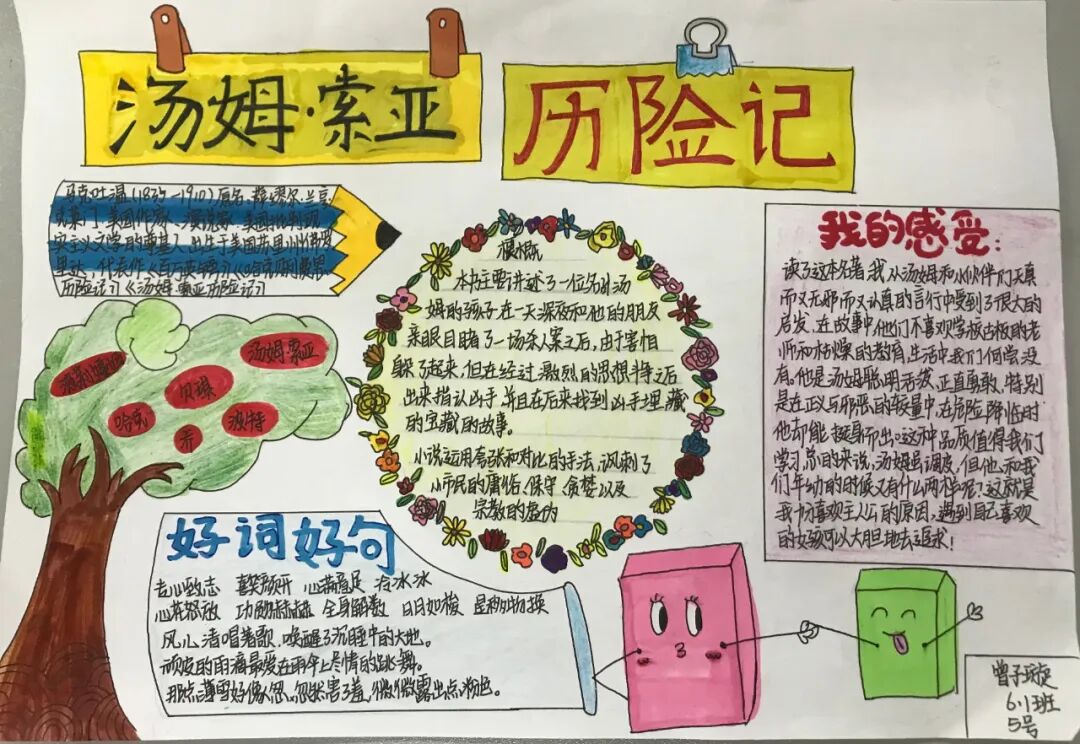 汤姆·索亚
历险记
马克·吐温(1835-1910)原名·萨缪尔·兰亨
克莱门,美国作家、演说家,美国批判现
实主义文学的奠基人,出生于美国
里达,代表作《百万英镑》《哈克贝利·费恩
历险记》《汤姆·索亚历险记》
我的感受:
读了这本名著,我从汤姆和小伙伴们天真
而又无邪而又认真的言行中受到了很大的
启发。在故事中他们不喜欢学校古板的老
师和枯燥的教育,生活中我们何尝没
有。他是汤姆聪明活泼,正直勇敢,特别
是在正义与邪恶的较量中,在危险降临时
他却能挺身而出。这种品质值得我们
学习。总的来说,汤姆虽调皮,但他和我
们年幼的时候又有什么两样呢?这就是
我十分喜欢主人公的原因,遇到自己喜欢
的女孩可以大胆地去追求!
概
本书主要讲述了一位名叫汤
姆的孩子在一天深夜和他的朋友
亲眼目睹了一场杀人案之后,由于害怕
躲了起来,但在经过激烈的思想斗争之后
出来指认凶手,并且在后来找到凶手埋藏
的宝藏的故事。
小说运用夸张和对比的手法,讽刺了
小市民的庸俗、保守、贪婪以及
宗教的虚伪
汤姆·索亚
贝琪
哈克
波特
乔
好词好句
专心致志 喜笑颜开 心满意足 冷冰冰
心花怒放 功勋赫赫 全身 日月如梭 星移物换
风儿清唱着歌,唤醒了沉睡中的大地。
顽皮的雨滴最爱在雨伞上尽情的跳舞。
那点薄雪好像忽然害了羞,微微露出点粉色。
曾子璇
6.1班
5号